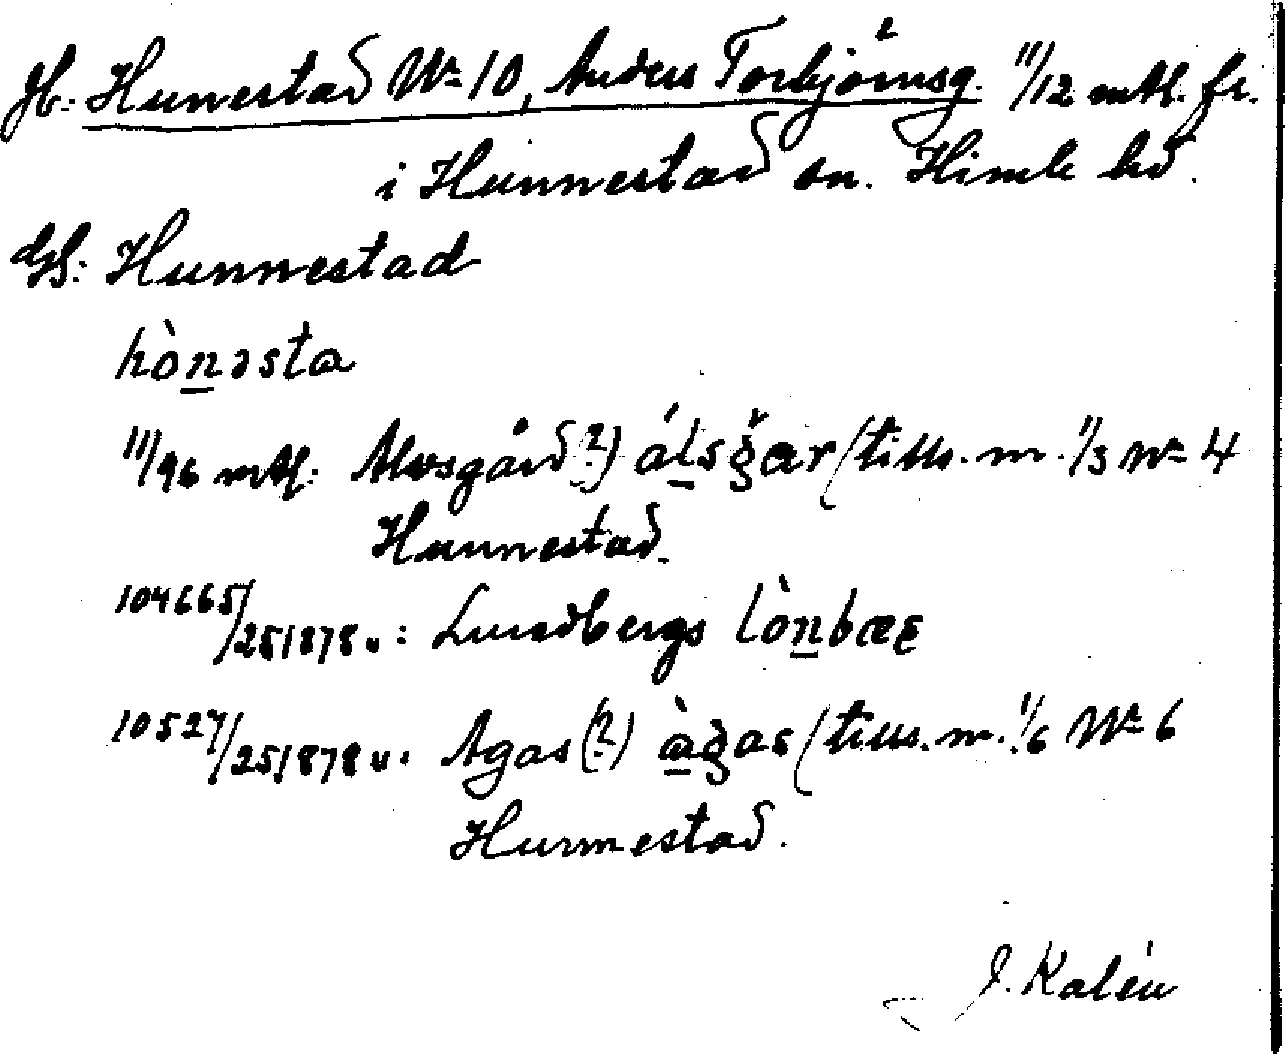 Jb: Hunestad Nº 10, Anders Torbjörnsg. 11/12 mtl. fr.
i Hunnestad sn. Himle hd.
Hunnestad
hònəsta
11/96 mtl: Alvsgård(?) álsgar (tills. m. 1/3 Nº 4
Hunnestad.
104665/251878 u: Lundbergs lònbæs
10527/251878 u. Agas(?) àgas (tills. m. 1/6 Nº 6
Hunnestad.
J. Kalén